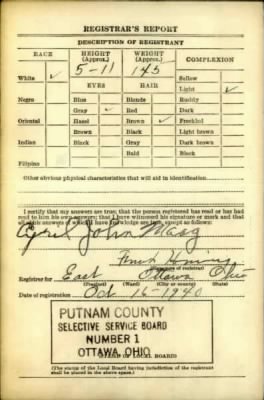 REGISTRAR'S REPORT
DESCRIPTION OF REGISTRANT
RACE HEIGHT (Approx.) WEIGHT (Approx.) COMPLEXION
White ✓ 5-11 145 Sallow
EYES HAIR Light ✓
Negro Blue Blonde Ruddy
Gray ✓ Red Dark
Oriental Hazel Brown ✓ Freckled
Brown Black Light brown
Indian Black Gray Dark brown
Bald Black
Filipino
Other obvious physical characteristics that will aid in identification
I certify that my answers are true; that the person registered has read or has had
read to him his own answers; that I have witnessed his signature or mark and that
all of his answers of which I have knowledge are true, except as follows:
John
(Signature of registrar)
Registrar for East Ottawa Ohio
(Precinct) (Ward) (City or county) (State)
Date of registration Oct. 16-1940
PUTNAM COUNTY
SELECTIVE SERVICE BOARD
NUMBER 1
OTTAWA, OHIO
(STAMP OF LOCAL BOARD)
(The stamp of the Local Board having jurisdiction of the registrant
shall be placed in the above space.)